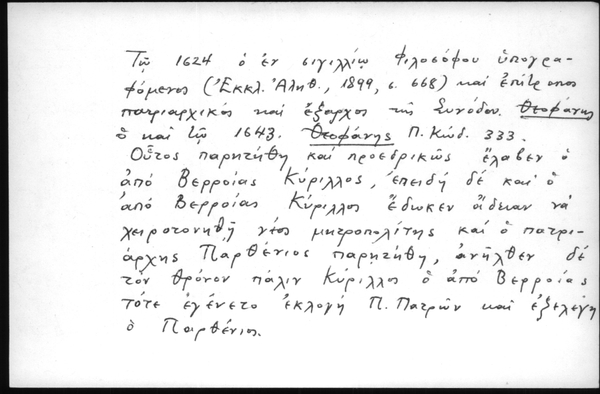 Τῷ 1624 ὁ ἐν σιγιλλίῳ Φιλοσόφου ὑπογρα-
φόμενος (Ἐκκλ. Ἀλήθ., 1899, σ. 668) καὶ ἐπίτροπος
πατριαρχικός καὶ ἔξαρχος τῆς Συνόδου. Θεοφάνης
ὁ καὶ τῷ 1643. Θεοφάνης Π. Κώδ. 333.
Οὗτος παρητήθη καὶ προεδρικῶς ἔλαβεν ὁ
ἀπό Βερροίας Κύριλλος, ἐπειδή δέ καὶ ὁ
ἀπό Βερροίας Κύριλλος ἔδωκεν ἄδειαν νά
χειροτονηθῇ νέος μητροπολίτης καὶ ὁ πατρι-
άρχης Παρθένιος παρητήθη, ἀνῆλθεν δέ
τόν θρόνον πάλιν Κύριλλος ὁ ἀπό Βερροίας
τότε ἐγένετο ἐκλογή Π. Πατρῶν καὶ ἐξελέγη
ὁ Παρθένιος.